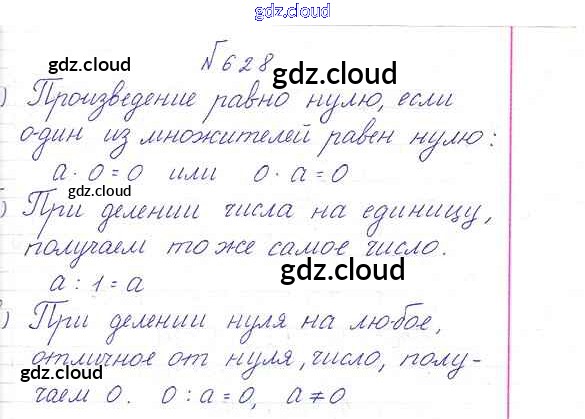 gdz.cloud
№628
gdz.cloud
gdz.cloud
) Произведение равно нулю, если
один из множителей равен нулю:
a · 0 = 0 или 0 · a = 0
gdz.cloud
) При делении числа на единицу,
получаем то же самое число.
gdz.cloud
a : 1 = a
) При делении нуля на любое,
отличное от нуля, число, полу-
gdz.cloud
чаем 0. 0 : a = 0, a ≠ 0